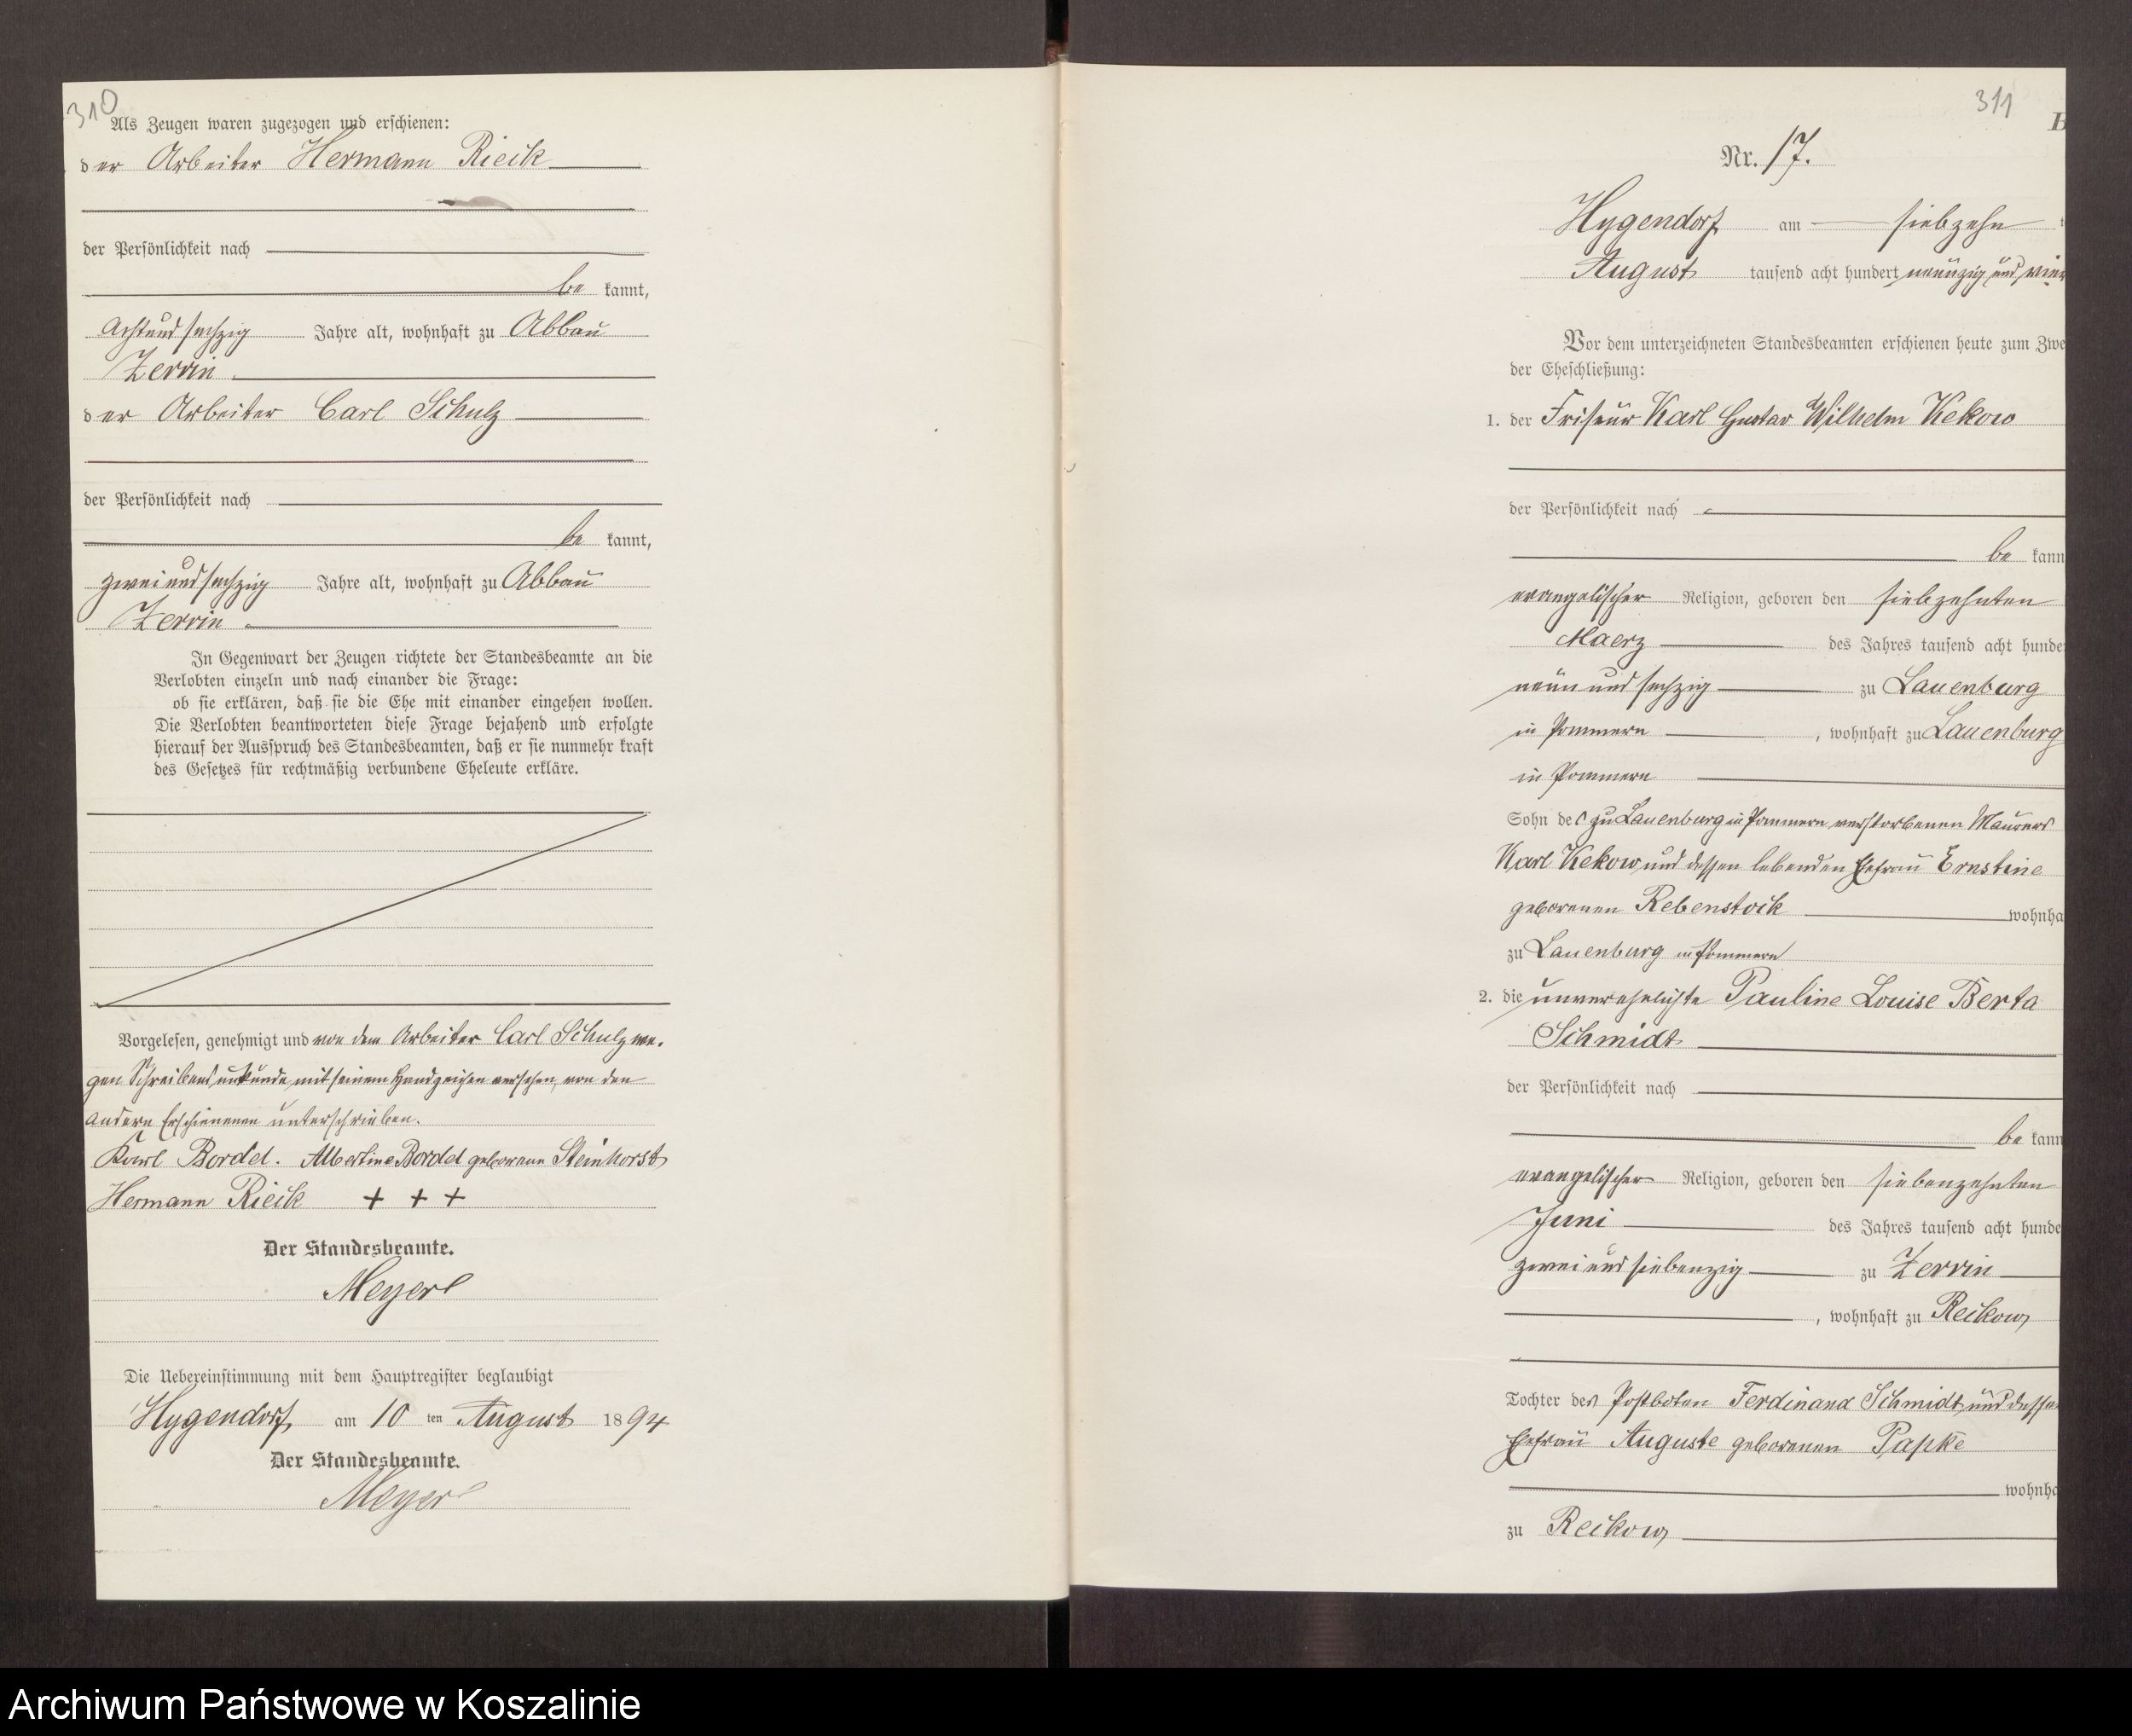 310
Als Zeugen waren zugezogen und erschienen:
der Arbeiter Hermann Rieck
der Persönlichkeit nach
be kannt,
achtundsechzig Jahre alt, wohnhaft zu Abbau
Zerrin
der Arbeiter Carl Schulz
der Persönlichkeit nach
be kannt,
zweiundsechzig Jahre alt, wohnhaft zu Abbau
Zerrin
In Gegenwart der Zeugen richtete der Standesbeamte an die
Verlobten einzeln und nach einander die Frage:
ob sie erklären, daß sie die Ehe mit einander eingehen wollen.
Die Verlobten beantworteten diese Frage bejahend und erfolgte
hierauf der Ausspruch des Standesbeamten, daß er sie nunmehr kraft
des Gesetzes für rechtmäßig verbundene Eheleute erkläre.
Vorgelesen, genehmigt und von dem Arbeiter Carl Schulz we-
gen Schreibensunkunde mit seinem Handzeichen versehen, von den
andern Erschienenen unterschrieben.
Karl Bordel. Albertine Bordel geborene Steinhorst
Hermann Rieck + + +
Der Standesbeamte.
Meyer
Die Uebereinstimmung mit dem Hauptregister beglaubigt
Hygendorf am 10 ten August 1894
Der Standesbeamte.
Meyer
311
B
Nr. 17.
Hygendorf am siebzehn t
August tausend acht hundert neunzig und vier
Vor dem unterzeichneten Standesbeamten erschienen heute zum Zwe
der Eheschließung:
1. der Friseur Karl Gustav Wilhelm Kekow
der Persönlichkeit nach
be kann
evangelischer Religion, geboren den siebzehnten
Maerz des Jahres tausend acht hunde
neun und sechzig zu Lauenburg
in Pommern, wohnhaft zu Lauenburg
in Pommern
Sohn des zu Lauenburg in Pommern verstorbenen Maurers
Karl Kekow und dessen lebenden Ehefrau Ernstine
geborenen Rebenstock wohnha
zu Lauenburg in Pommern
2. die unverehelichte Pauline Louise Berta
Schmidt
der Persönlichkeit nach
be kann
evangelischer Religion, geboren den siebenzehnten
Juni des Jahres tausend acht hunde
zwei und siebenzig zu Zerrin
, wohnhaft zu Reckow
Tochter des Postboten Ferdinand Schmidt und dessen
Ehefrau Auguste geborenen Papke
wohnha
zu Reckow
Archiwum Państwowe w Koszalinie